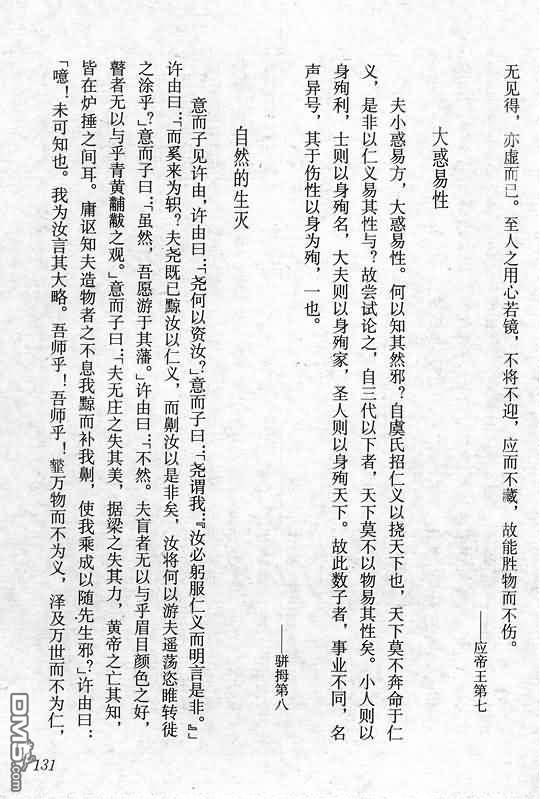 无见得，亦虚而已。至人之用心若镜，不将不迎，应而不藏，故能胜物而不伤。
——应帝王第七
大惑易性
夫小惑易方，大惑易性。何以知其然邪？自虞氏招仁义以挠天下也，天下莫不奔命于仁
义，是非以仁义易其性与？故尝试论之，自三代以下者，天下莫不以物易其性矣。小人则以
身殉利，士则以身殉名，大夫则以身殉家，圣人则以身殉天下。故此数子者，事业不同，名
声异号，其于伤性以身为殉，一也。
——骈拇第八
自然的生灭
意而子见许由，许由曰：「尧何以资汝？意而子曰：「尧谓我：『汝必躬服仁义而明言是非。』」
许由曰：「而奚来为轵？夫尧既已黥汝以仁义，而劓汝以是非矣，汝将何以游夫遥荡恣睢转徙
之涂乎？」意而子曰：「虽然，吾愿游于其藩。」许由曰：「不然。夫盲者无以与乎眉目颜色之好，
瞽者无以与乎青黄黼黻之观。」意而子曰：「夫无庄之失其美，据梁之失其力，黄帝之亡其知，
皆在炉捶之间耳。庸讵知夫造物者之不息我黥而补我劓，使我乘成以随先生邪？」许由曰：
「噫！未可知也。我为汝言其大略。吾师乎！吾师乎！䪠万物而不为义，泽及万世而不为仁，
131